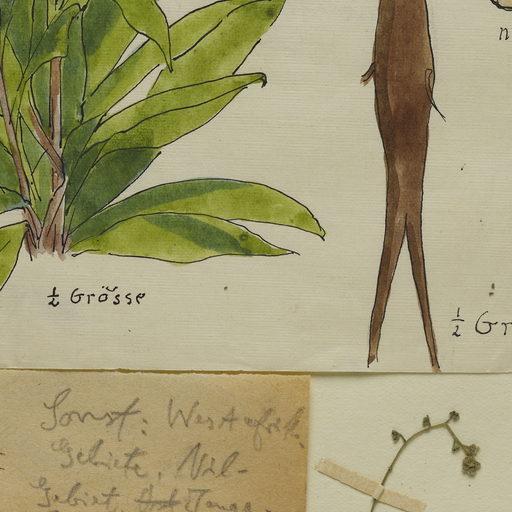 n
½ Grösse
½ Gr
Sonst: Westafrik.
Gebiete, Nil-
Gebiet,